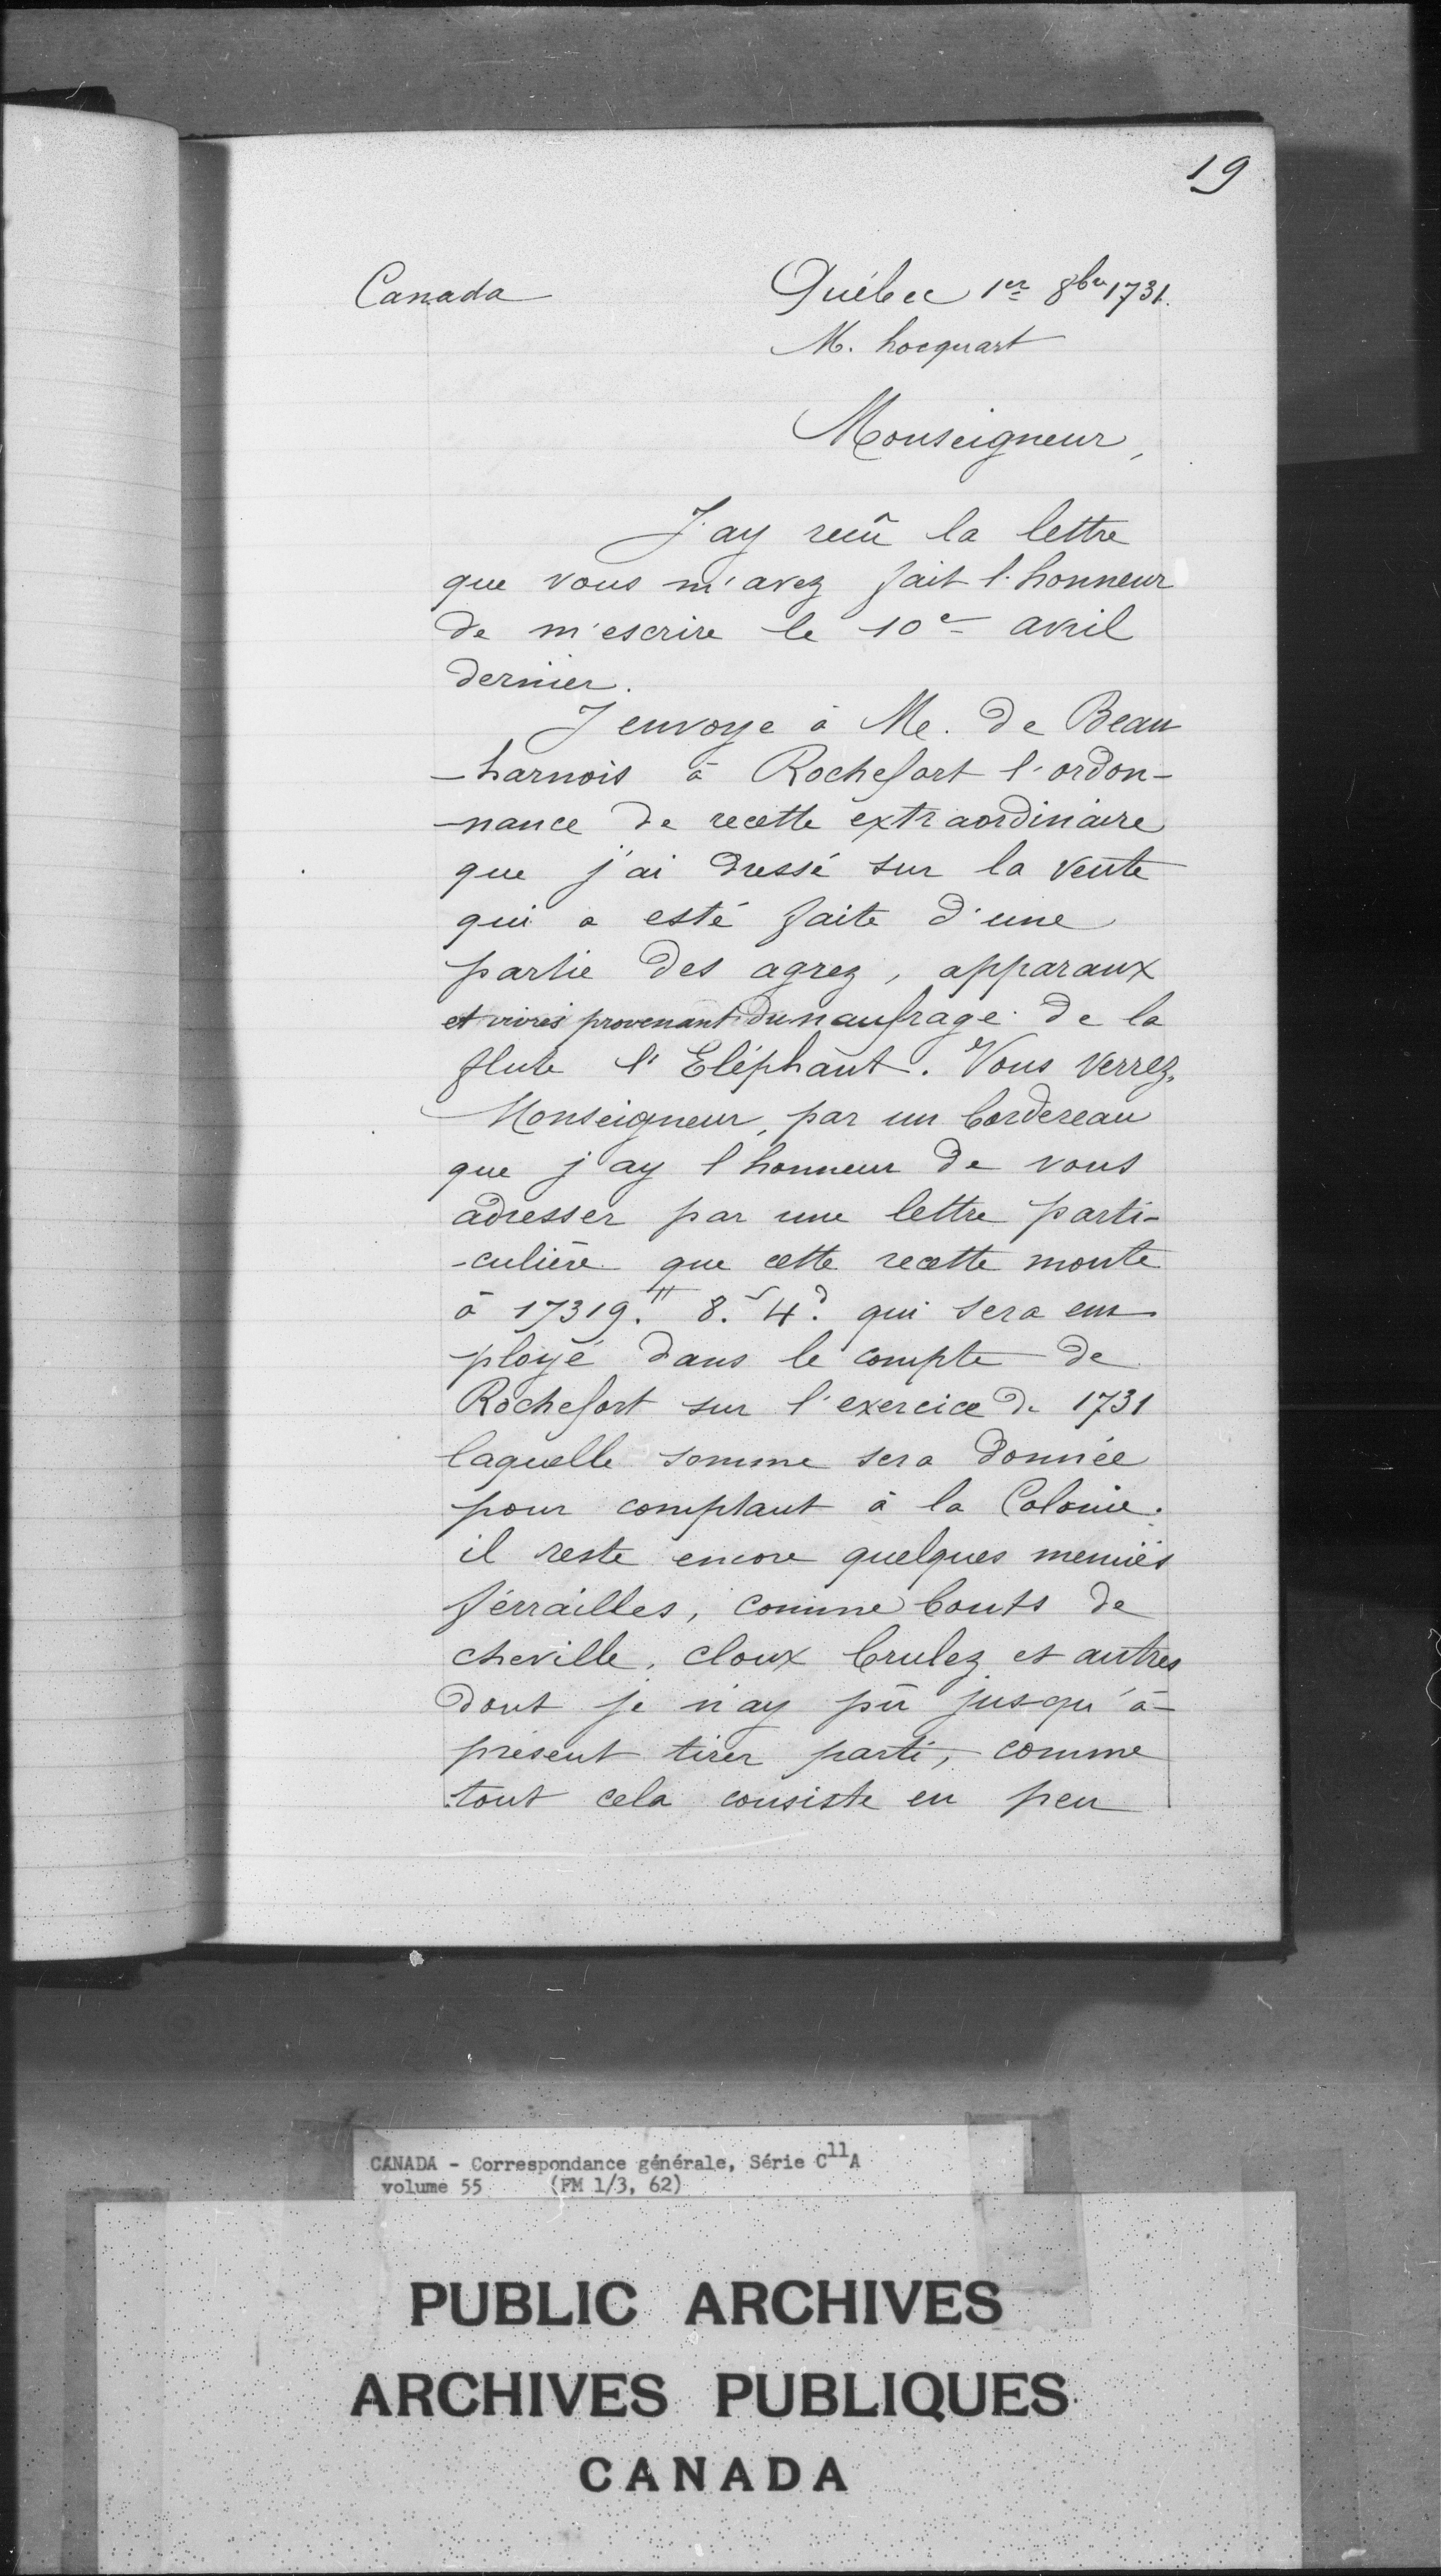 19
Canada
Québec 1er 8bre 1731.
M. hocquart
Monseigneur,
J'ay reçû la lettre
que vous m'avez fait l'honneur
de m'escrire le 10e avril
dernier.
J envoye à Me. de Beau
-harnois à Rochefort l'ordon-
-nance de recette extraordinaire
que j'ai dressé sur la vente
qui a esté faite d'une
partie des agrez, apparaux
et vivres provenant du naufrage de la
flute l'Eléphant. Vous verrez,
Monseigneur, par un bordereau
que j'ay l honneur de vous
adresser par une lettre parti-
-culière que cette recette monte
à 17319.# 8.s 4.d qui sera em
ployé dans le compte de
Rochefort sur l'exercice de 1731
laquelle somme sera donnée
pour comptant à la Colonie.
il reste encore quelques menües
ferrailles, comme bouts de
cheville, cloux brulez et autres
dont je n'ay pû jusqu'à-
présent tirer parti, comme
tout cela consiste en peu
CANADA - Correspondance générale, Série C11A
volume 55 (FM 1/3, 62)
PUBLIC ARCHIVES
ARCHIVES PUBLIQUES
CANADA